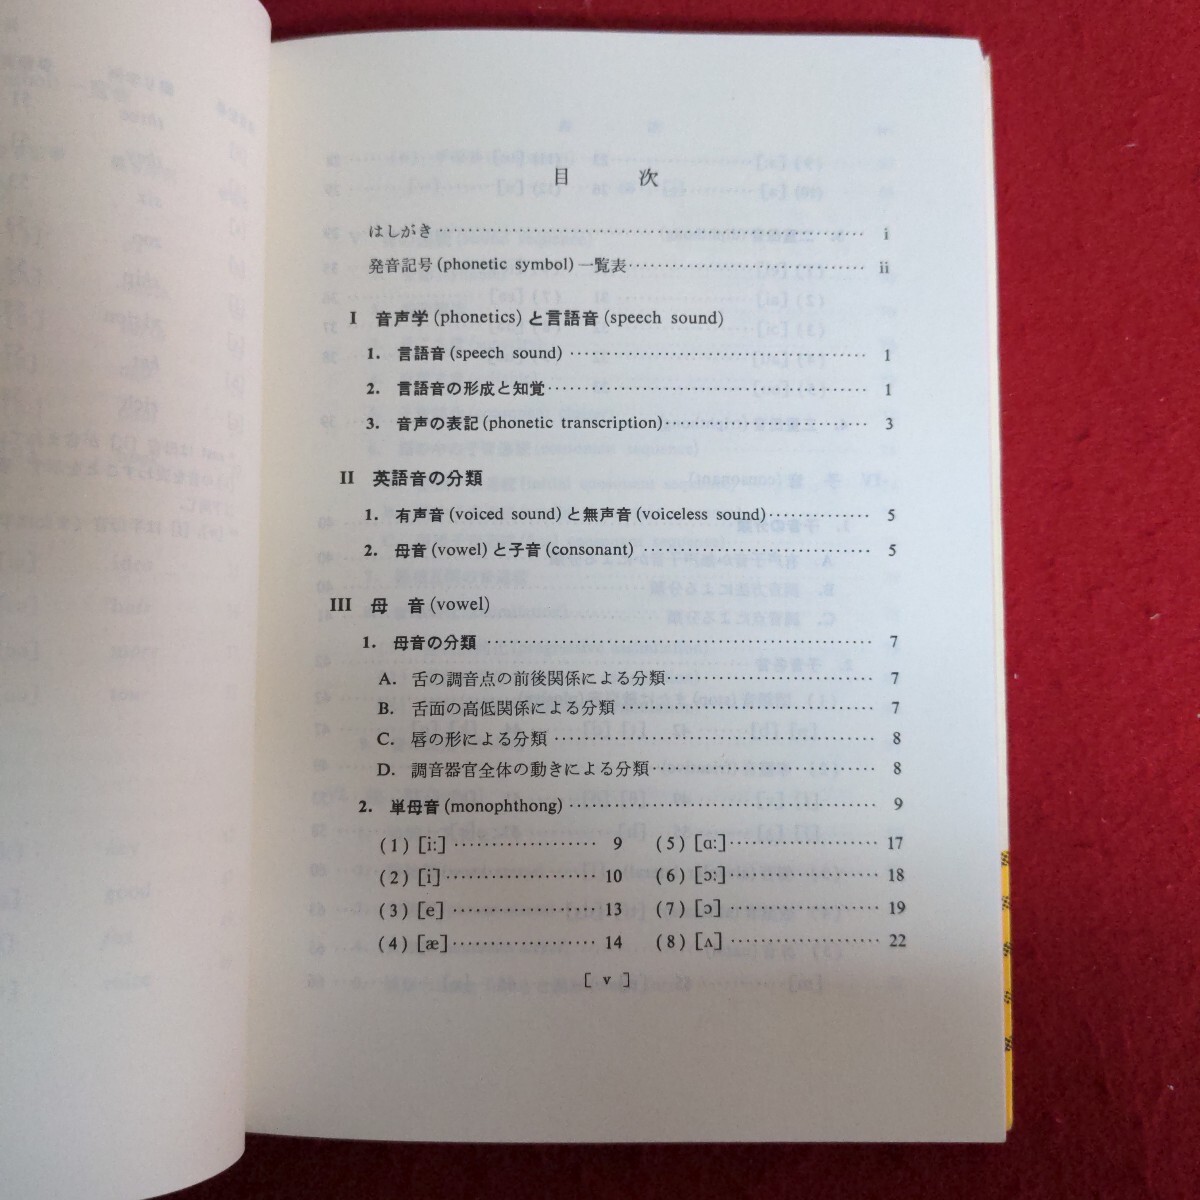 目次
はしがき i
発音記号 (phonetic symbol) 一覧表 ii
I 音声学 (phonetics) と言語音 (speech sound)
1. 言語音 (speech sound) 1
2. 言語音の形成と知覚 1
3. 音声の表記 (phonetic transcription) 3
II 英語音の分類
1. 有声音 (voiced sound) と無声音 (voiceless sound) 5
2. 母音 (vowel) と子音 (consonant) 5
III 母 音 (vowel)
1. 母音の分類 7
A. 舌の調音点の前後関係による分類 7
B. 舌面の高低関係による分類 7
C. 唇の形による分類 8
D. 調音器官全体の動きによる分類 8
2. 単母音 (monophthong) 9
(1) [iː] 9 (5) [ɑː] 17
(2) [i] 10 (6) [ɔː] 18
(3) [e] 13 (7) [ɔ] 19
(4) [æ] 14 (8) [ʌ] 22
[ v ]